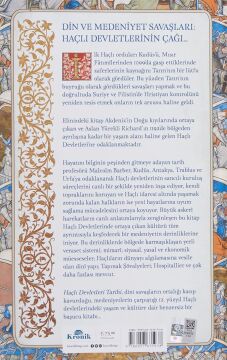 DİN VE MEDENİYET SAVAŞLARI:
HAÇLI DEVLETLERİNİN ÇAĞI...
İlk Haçlı orduları Kudüs'ü, Mısır
Fâtımîlerinden 1099'da gasp ettiklerinde
zaferlerinin kaynağını Tanrı'nın bir lütfu
olarak gördüler. Bu yüzden Tanrı'nın
buyruğu olarak gördükleri savaşları yapmak ve bu
doğrultuda Suriye ve Filistin'de Hristiyan kontrolünü
yeniden tesis etmek onların tek arzusu haline geldi.
Elinizdeki kitap Akdeniz'in Doğu kıyılarında ortaya
çıkan ve Aslan Yürekli Richard'ın
ayrılışına kadar bir yaşam alanı haline gelen Haçlı
Devletleri'ne odaklanmaktadır.
Hayatını bilginin peşinden gitmeye adayan tarih
profesörü Malcolm Barber, Kudüs, Antakya, Trablus ve
Urfa'ya odaklanarak Haçlı devletlerinin sancılı kuruluş
süreçlerini canlı bir şekilde yeniden inşa ediyor, kendi
topraklarını, hanedanı ve Haçlı idaresi altında yaşamak
zorunda kalan halkların bu yeni hayatlarına uyum
sağlama mücadelesini ortaya koyuyor. Büyük askerî
harekatların canlı anlatımlarıyla zenginleşen bu kitap
Haçlı devletlerinde ortaya çıkan kültürü tüm
ayrıntısıyla
Bu derinliklerde bölgede karmaşıklaşan yerli
veraset sistemi, mimari, siyasal, yasal ve ekonomik
müesseseler, Haçlıların dünyayı algılamasına vesile
olan dinî yapı, Tapınak Şövalyeleri, Hospitalier ve çok
daha fazlası mevcut.
Haçlı Devletleri Tarihi, din savaşlarının ortalığı kasıp
kavurduğu, medeniyetlerin çarpıştığı
Haçlı devletlerindeki yaşam ve kültüre dair benzersiz bir
başucu kitabı...
Kronik